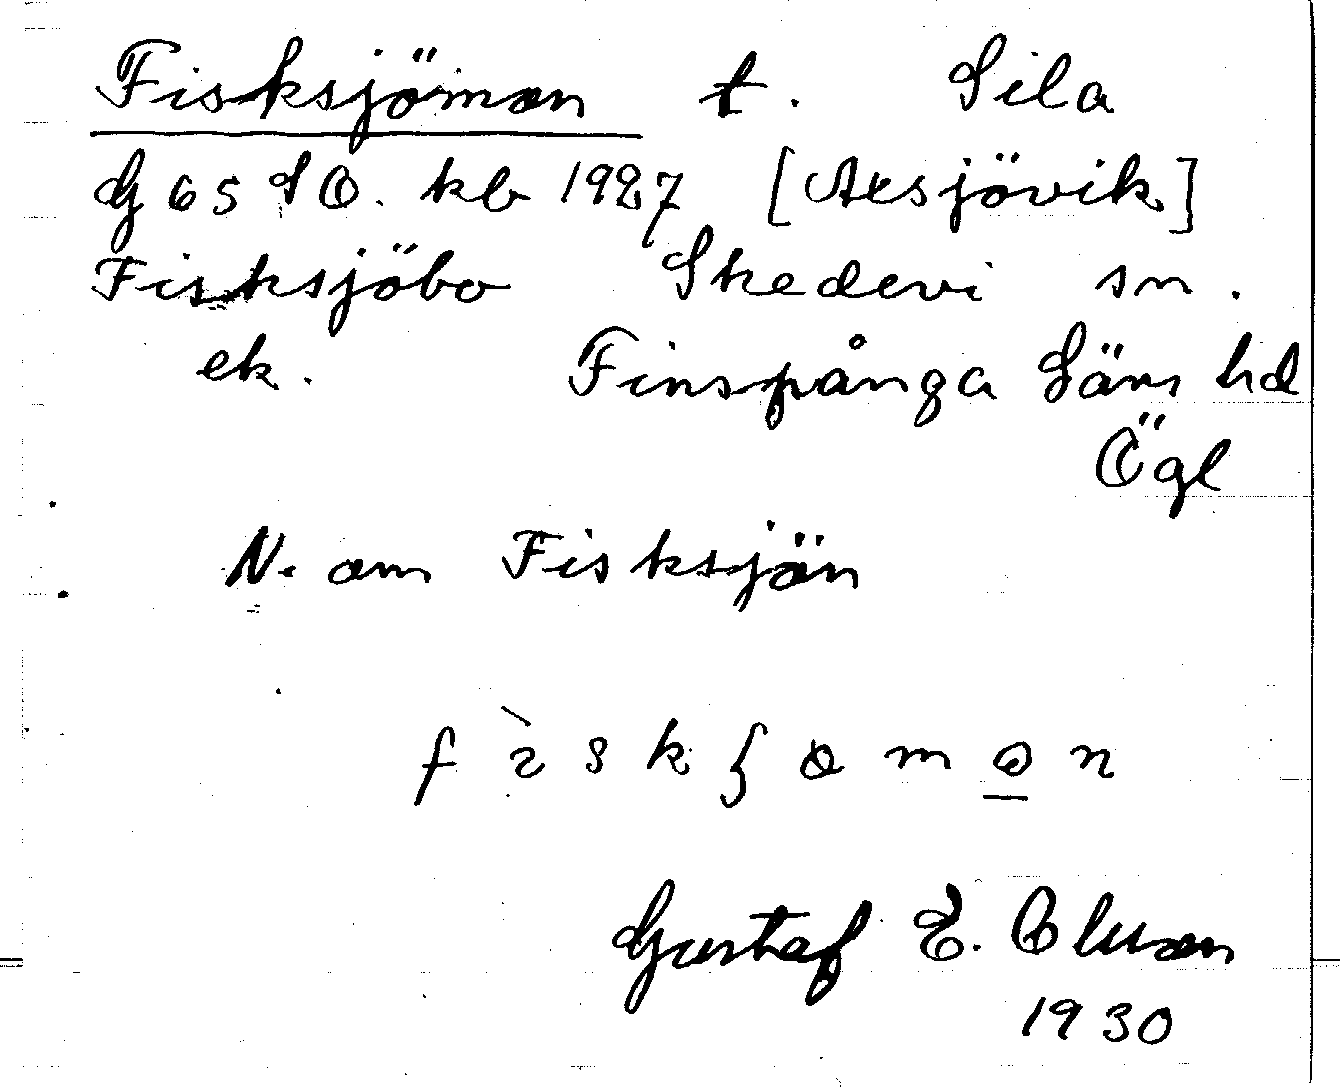 Fisksjömon t. Sila
G 65 SO. kb 1927 [Axsjövik]
Fisksjöbo Skedevi sn.
ek. Finspånga Läns hd
Ögl
N. om Fisksjön
Gustaf E. Olsson
1930